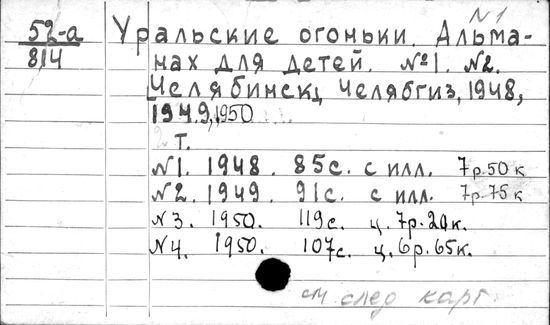 №1
52-а Уральские огоньки. Альма-
814 нах для детей. №1. №2.
Челябинск, Челябгиз, 1948,
1949, 1950
2 т.
№1. 1948. 85с. с илл. 7р.50к
№2. 1949. 91с. с илл. 7р.75к
№3. 1950. 119с. ц. 7р.20к.
№4. 1950. 107с. ц. 6р.65к.
см след карт